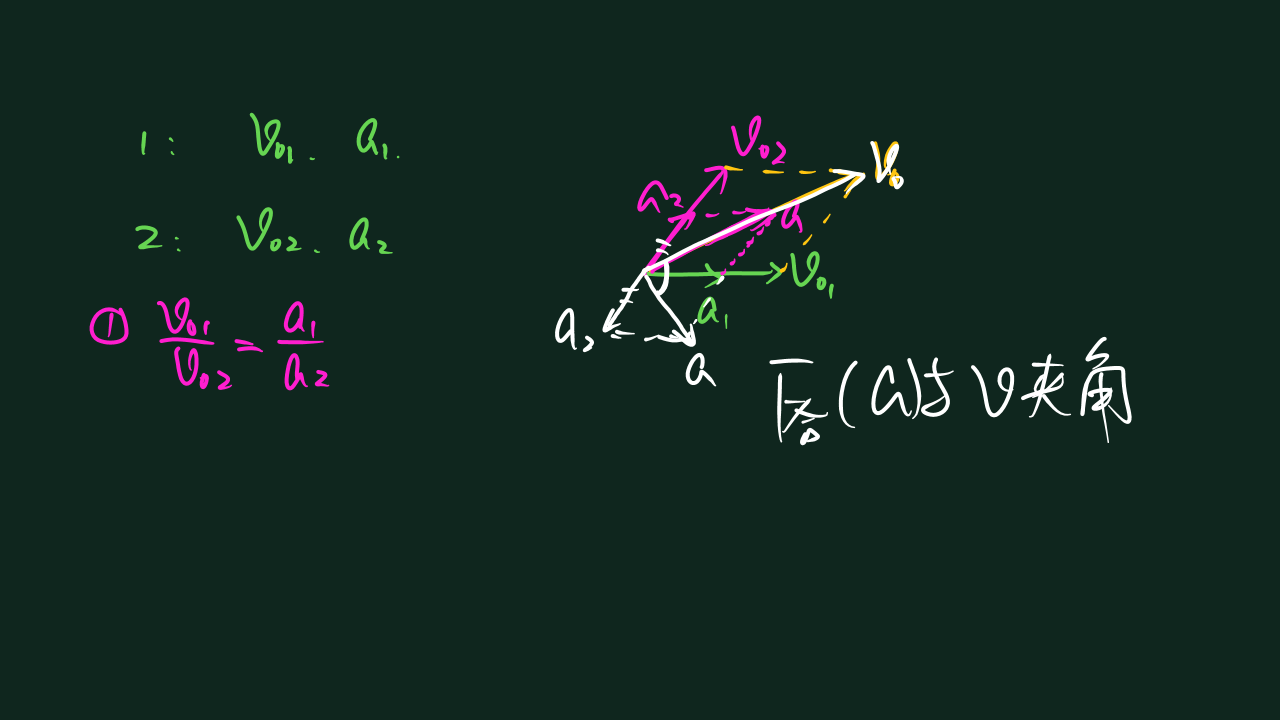 1: V01. a1.
2: V02. a2
① V01/V02 = a1/a2
V02
V0
a2
a
V01
a1
a2
a
F合(a)与V夹角